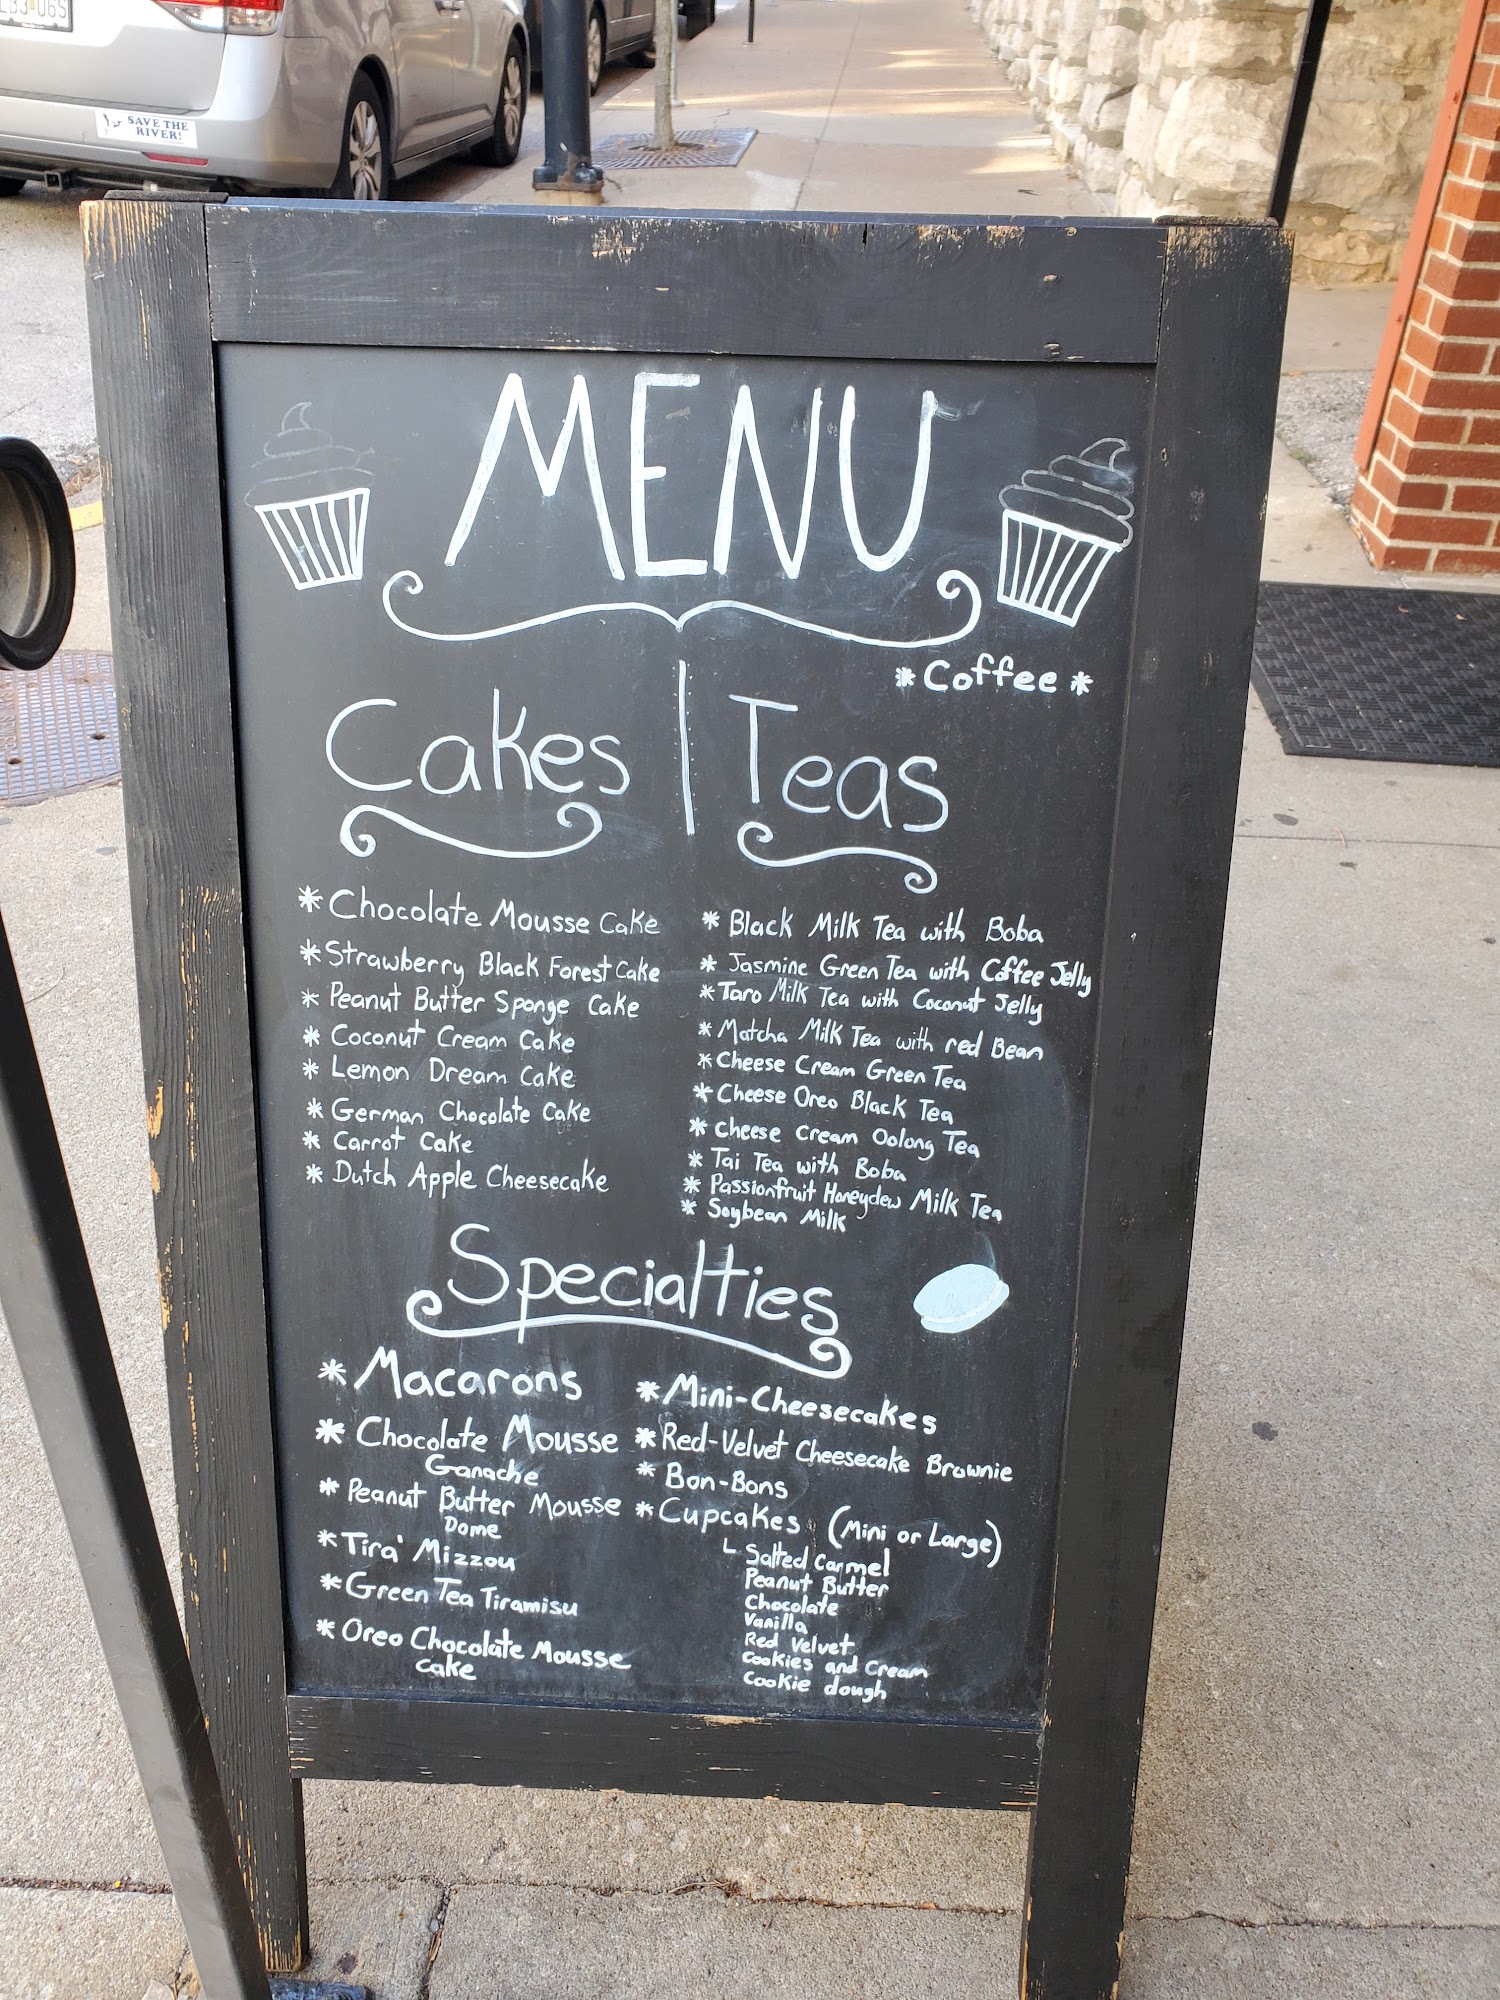 SAVE THE
RIVER!
MENU
*Coffee*
Cakes
* Chocolate Mousse Cake
* Strawberry Black Forest Cake
* Peanut Butter Sponge Cake
* Coconut Cream Cake
* Lemon Dream Cake
* German Chocolate Cake
* Carrot Cake
* Dutch Apple Cheesecake
Teas
* Black Milk Tea with Boba
* Jasmine Green Tea with Coffee Jelly
* Taro Milk Tea with Coconut Jelly
* Matcha Milk Tea with red Bean
* Cheese Cream Green Tea
* Cheese Oreo Black Tea
* Cheese Cream Oolong Tea
* Tai Tea with Boba
* Passionfruit Honeydew Milk Tea
* Soybean Milk
Specialties
* Macarons
* Chocolate Mousse
Ganache
* Peanut Butter Mousse
Dome
* Tira' Mizzou
* Green Tea Tiramisu
* Oreo Chocolate Mousse
Cake
* Mini-Cheesecakes
* Red-Velvet Cheesecake Brownie
* Bon-Bons
* Cupcakes (Mini or Large)
Salted Carmel
Peanut Butter
Chocolate
Vanilla
Red Velvet
Cookies and Cream
Cookie dough